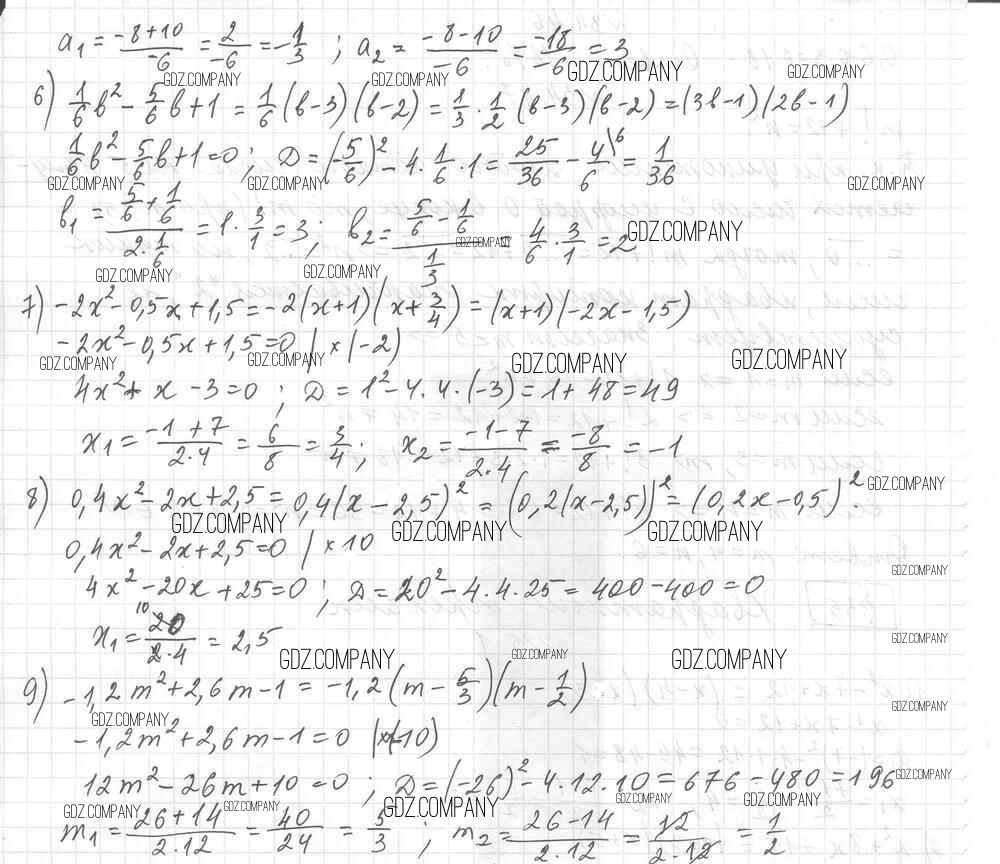 a₁ = (-8+10)/(-6) = 2/(-6) = -1/3 ; a₂ = (-8-10)/(-6) = (-18)/(-6) = 3
GDZ.COMPANY GDZ.COMPANY GDZ.COMPANY GDZ.COMPANY
6) 1/6 b² - 5/6 b + 1 = 1/6 (b-3)(b-2) = 1/3 · 1/2 (b-3)(b-2) = (3b-1)(2b-1)
1/6 b² - 5/6 b + 1 = 0 ; D = (-5/6)² - 4 · 1/6 · 1 = 25/36 - 4/6 \6 = 1/36
GDZ.COMPANY GDZ.COMPANY GDZ.COMPANY
b₁ = (5/6 + 1/6)/(2 · 1/6) = 1 · 3/1 = 3 ; b₂ = (5/6 - 1/6)/(1/3) = 4/6 · 3/1 = 2
GDZ.COMPANY GDZ.COMPANY
GDZ.COMPANY GDZ.COMPANY
7) -2x² - 0,5x + 1,5 = -2(x+1)(x + 3/4) = (x+1)(-2x - 1,5)
-2x² - 0,5x + 1,5 = 0 | × (-2)
GDZ.COMPANY GDZ.COMPANY GDZ.COMPANY GDZ.COMPANY
4x² + x - 3 = 0 ; D = 1² - 4 · 4 · (-3) = 1 + 48 = 49
x₁ = (-1+7)/(2·4) = 6/8 = 3/4 ; x₂ = (-1-7)/(2·4) = -8/8 = -1
8) 0,4x² - 2x + 2,5 = 0,4(x - 2,5)² = (0,2(x-2,5))² = (0,2x - 0,5)².
GDZ.COMPANY
GDZ.COMPANY GDZ.COMPANY GDZ.COMPANY
0,4x² - 2x + 2,5 = 0 | × 10
GDZ.COMPANY
4x² - 20x + 25 = 0 ; D = 20² - 4 · 4 · 25 = 400 - 400 = 0
x₁ = 10 20/(2·4) = 2,5
GDZ.COMPANY
GDZ.COMPANY GDZ.COMPANY GDZ.COMPANY
9) -1,2m² + 2,6m - 1 = -1,2(m - 5/3)(m - 1/2)
GDZ.COMPANY GDZ.COMPANY
-1,2m² + 2,6m - 1 = 0 | × (-10)
12m² - 26m + 10 = 0 ; D = (-26)² - 4 · 12 · 10 = 676 - 480 = 196
GDZ.COMPANY
GDZ.COMPANY GDZ.COMPANY GDZ.COMPANY GDZ.COMPANY GDZ.COMPANY
m₁ = (26+14)/(2·12) = 40/24 = 5/3 ; m₂ = (26-14)/(2·12) = 12/(2·12) = 1/2